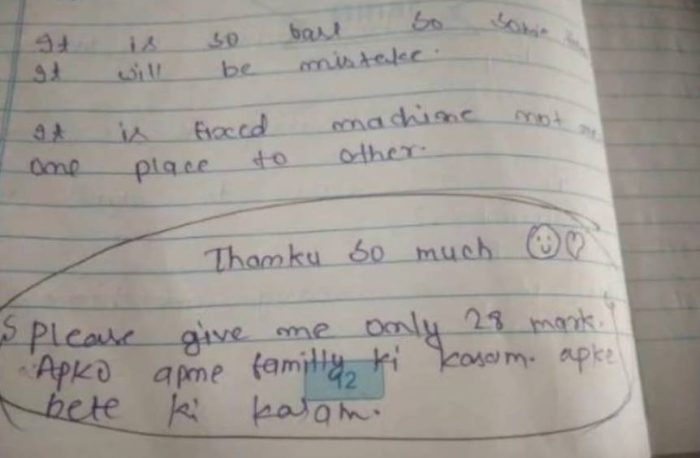 It is so base so some
It will be mistake.
It is fixced machine not
one place to other.
Thanku so much
S please give me only 28 mark.
Apko apne familly ki kasam. apke
92
bete ki kasam.